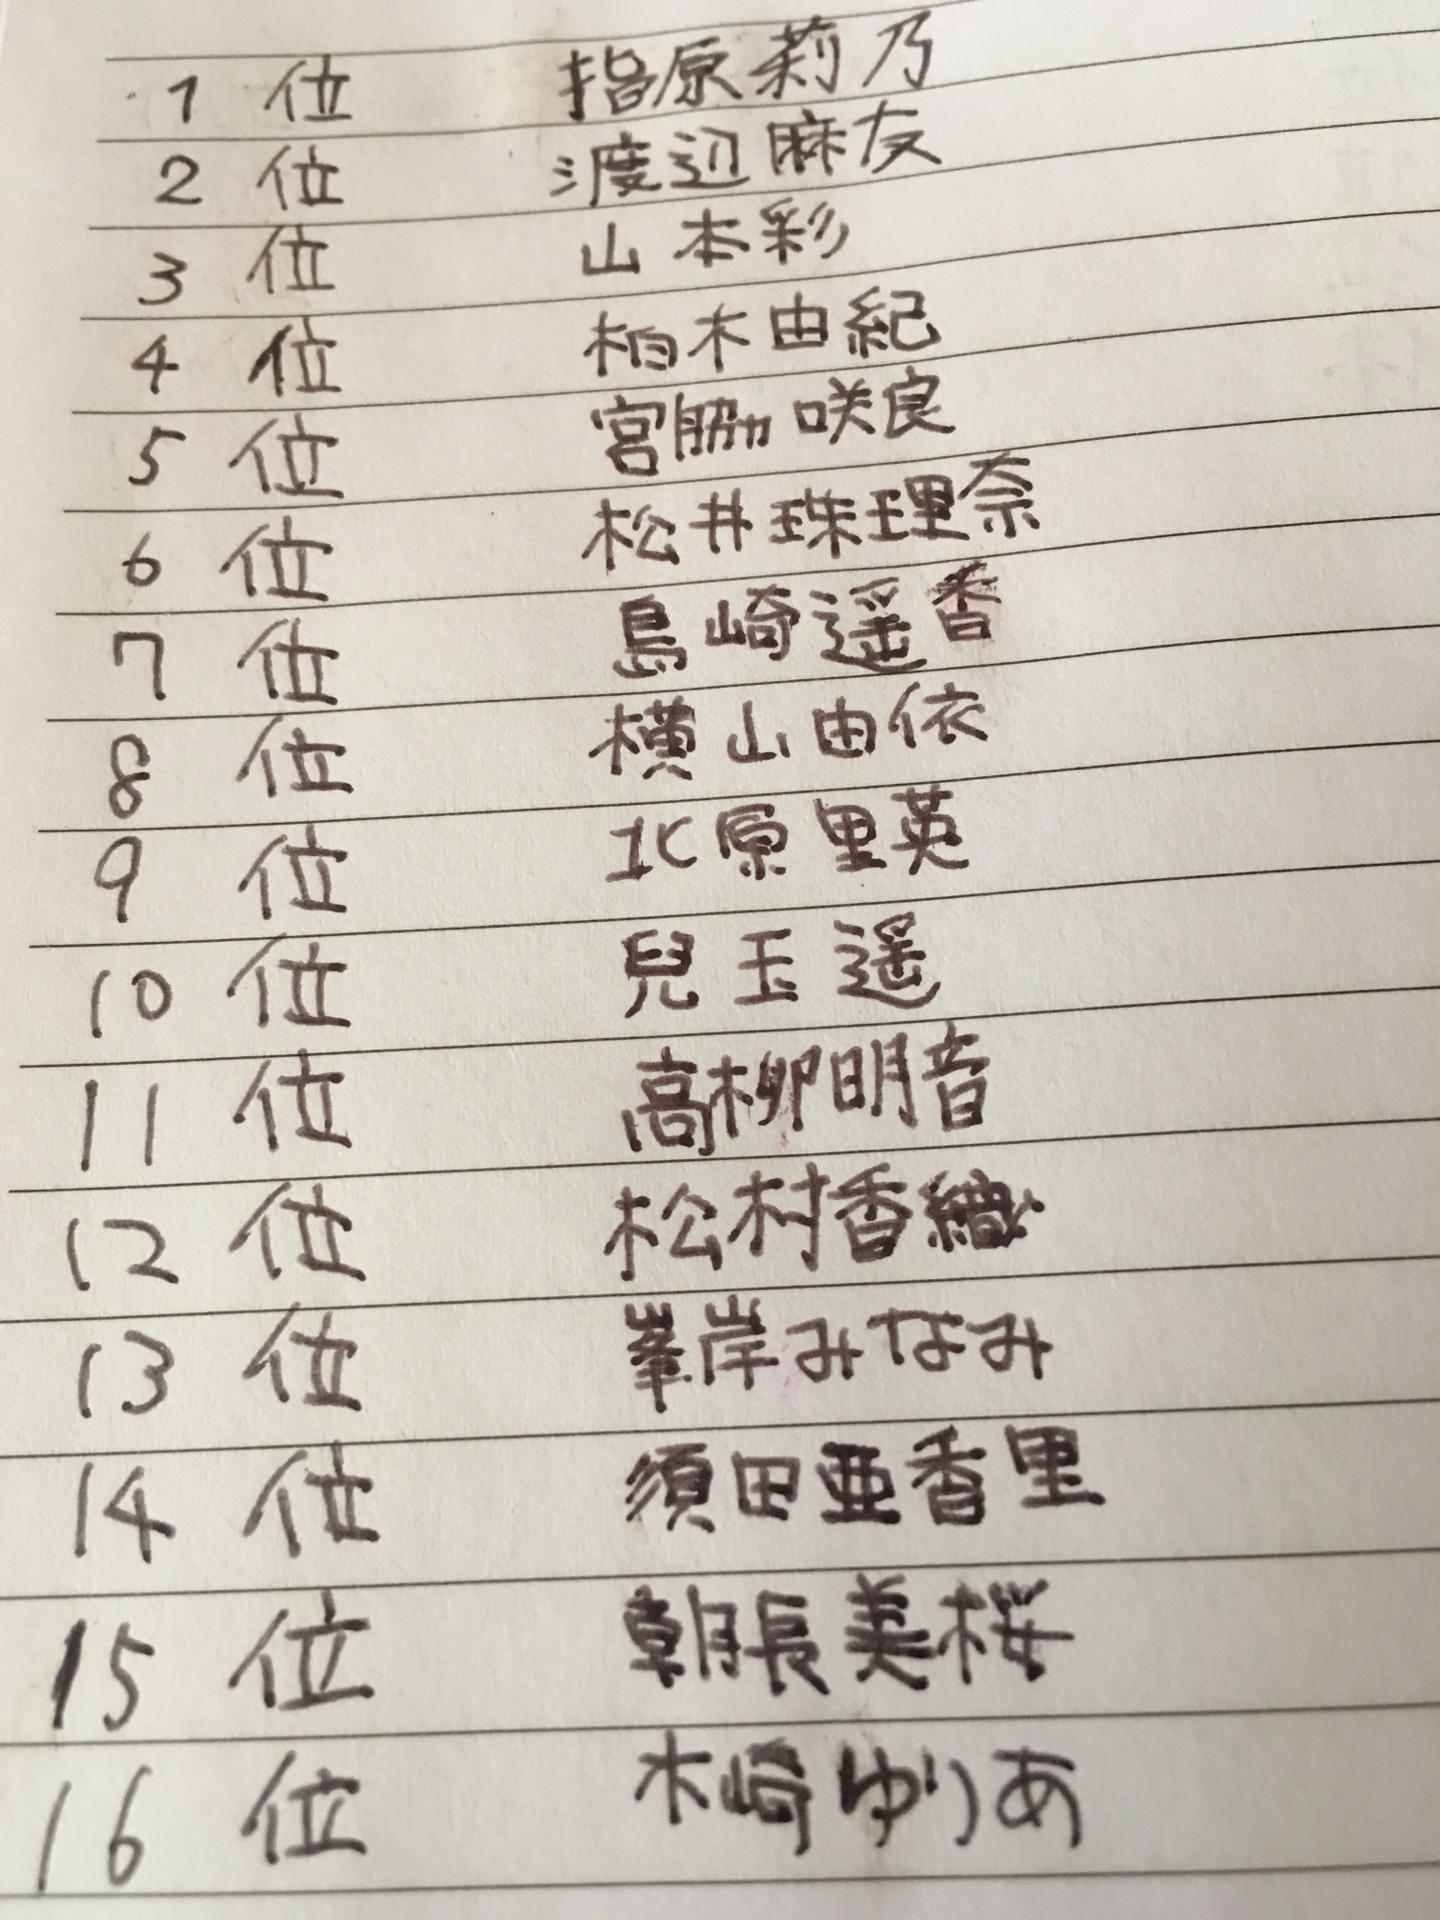 1位 指原莉乃
2位 渡辺麻友
3位 山本彩
4位 柏木由紀
5位 宮脇咲良
6位 松井珠理奈
7位 島崎遥香
8位 横山由依
9位 北原里英
10位 兒玉遥
11位 高柳明音
12位 松村香織
13位 峯岸みなみ
14位 須田亜香里
15位 朝長美桜
16位 木崎ゆりあ